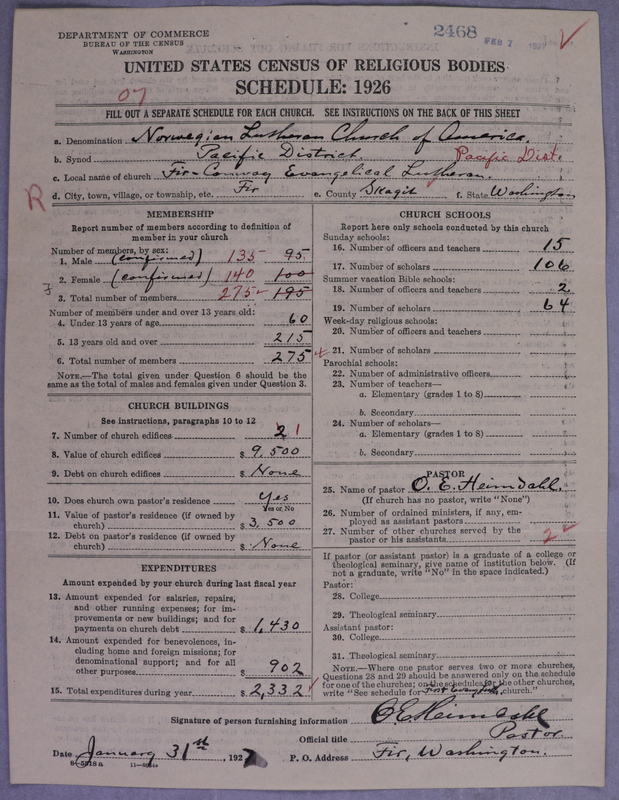 DEPARTMENT OF COMMERCE
BUREAU OF THE CENSUS
WASHINGTON
2468 FEB 7
UNITED STATES CENSUS OF RELIGIOUS BODIES
SCHEDULE: 1926
07
FILL OUT A SEPARATE SCHEDULE FOR EACH CHURCH. SEE INSTRUCTIONS ON THE BACK OF THIS SHEET
a. Denomination Norwegian Lutheran Church of America.
b. Synod Pacific District. Pacific Dist.
c. Local name of church Fir-Conway Evangelical Lutheran.
R d. City, town, village, or township, etc. Fir e. County Skagit f. State Washington
MEMBERSHIP
Report number of members according to definition of
member in your church
Number of members, by sex:
1. Male (confirmed) 135 95
2. Female (confirmed) 140 100
3. Total number of members 275 195
Number of members under and over 13 years old:
4. Under 13 years of age 60
5. 13 years old and over 215
6. Total number of members 275
NOTE.—The total given under Question 6 should be
same as the total of males and females given under Question 3.
CHURCH BUILDINGS
See instructions, paragraphs 10 to 12
7. Number of church edifices 2 1
8. Value of church edifices $ 9,500
9. Debt on church edifices $ None
10. Does church own pastor's residence Yes
Yes or No
11. Value of pastor's residence (if owned by
church) $ 3,500
12. Debt on pastor's residence (if owned by
church) $ None
EXPENDITURES
Amount expended by your church during last fiscal year
13. Amount expended for salaries, repairs,
and other running expenses; for im-
provements or new buildings; and for
payments on church debt $ 1,430
14. Amount expended for benevolences, in-
cluding home and foreign missions; for
denominational support; and for all
other purposes $ 902
15. Total expenditures during year $ 2,332
CHURCH SCHOOLS
Report here only schools conducted by this church
Sunday schools:
16. Number of officers and teachers 15
17. Number of scholars 106
Summer vacation Bible schools:
18. Number of officers and teachers 2
19. Number of scholars 64
Week-day religious schools:
20. Number of officers and teachers
21. Number of scholars
Parochial schools:
22. Number of administrative officers
23. Number of teachers—
a. Elementary (grades 1 to 8)
b. Secondary
24. Number of scholars—
a. Elementary (grades 1 to 8)
b. Secondary
PASTOR
25. Name of pastor O. E. Heimdahl.
(If church has no pastor, write "None")
26. Number of ordained ministers, if any, em-
ployed as assistant pastors
27. Number of other churches served by the
pastor or his assistants 2
If pastor (or assistant pastor) is a graduate of a college or
theological seminary, give name of institution below. (If
not a graduate, write "No" in the space indicated.)
Pastor:
28. College
29. Theological seminary
Assistant pastor:
30. College
31. Theological seminary
NOTE.—Where one pastor serves two or more churches,
Questions 28 and 29 should be answered only on the schedule
for one of the churches; on the schedules for the other churches,
write "See schedule for First church."
Signature of person furnishing information O E Heimdahl
Official title Pastor.
Date January 31st, 1927 P. O. Address Fir, Washington.